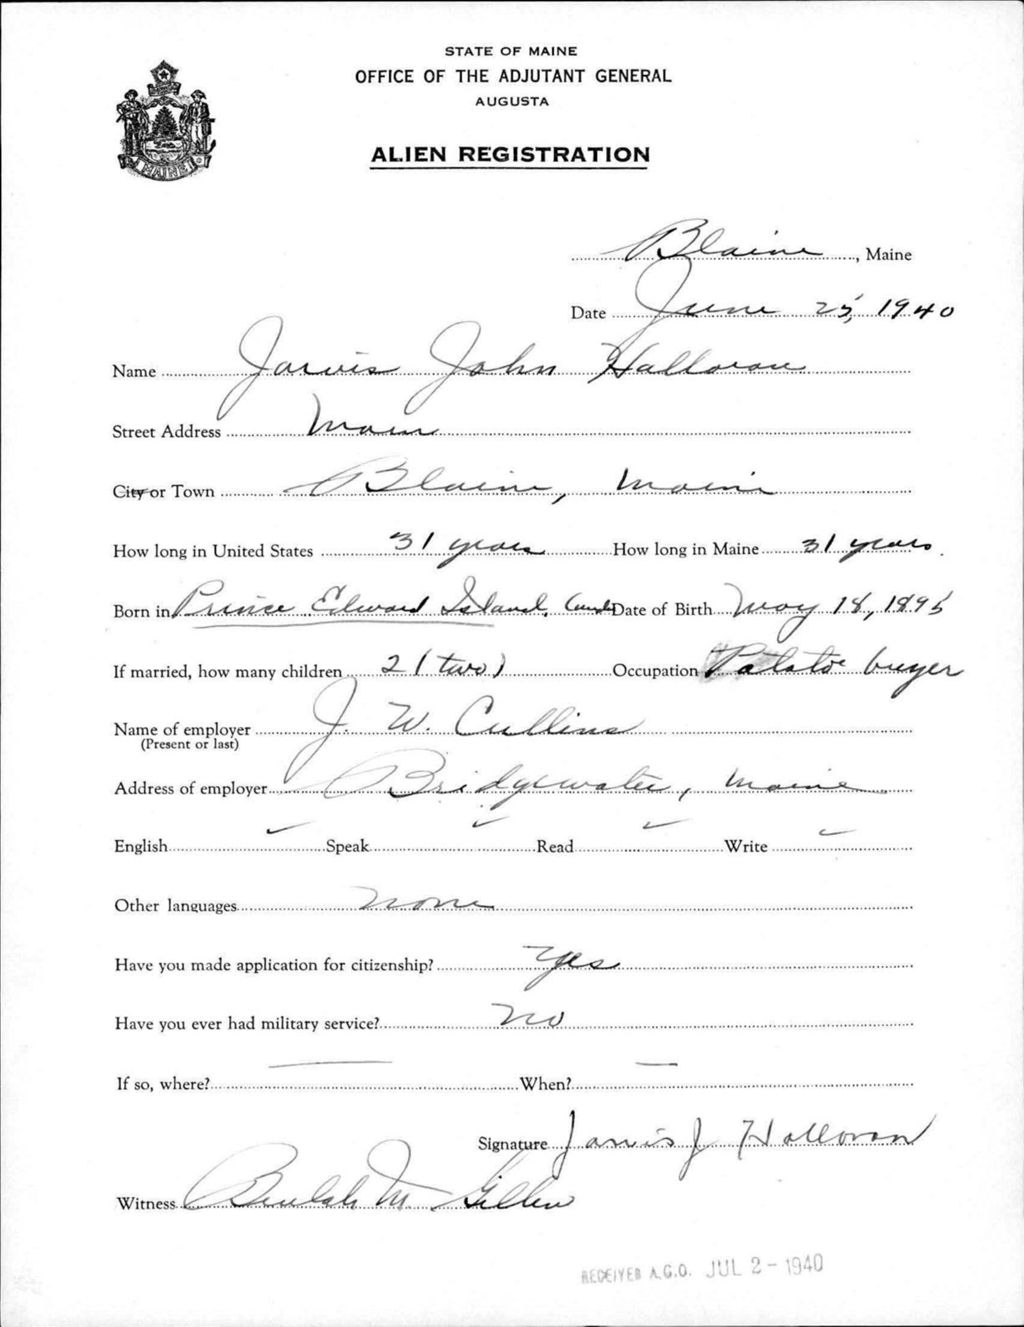 STATE OF MAINE
OFFICE OF THE ADJUTANT GENERAL
AUGUSTA
ALIEN REGISTRATION
MAINE
Blaine, Maine
Date June 25, 1940
Name Jarvis John Halloran
Street Address Main
City or Town Blaine, Maine
How long in United States 31 years How long in Maine 31 years.
Born in Prince Edward Island, Date of Birth May 18, 1895
If married, how many children 2 (two) Occupation Potatoe buyer
Name of employer J. W. Cullins
(Present or last)
Address of employer Bridgewater, Maine
English ✓ Speak ✓ Read ✓ Write ✓
Other languages none
Have you made application for citizenship? Yes
Have you ever had military service? No
If so, where? — When? —
Signature Jarvis J Halloran
Witness Beulah M. Gillen
RECEIVED A.G.O. JUL 2 - 1940